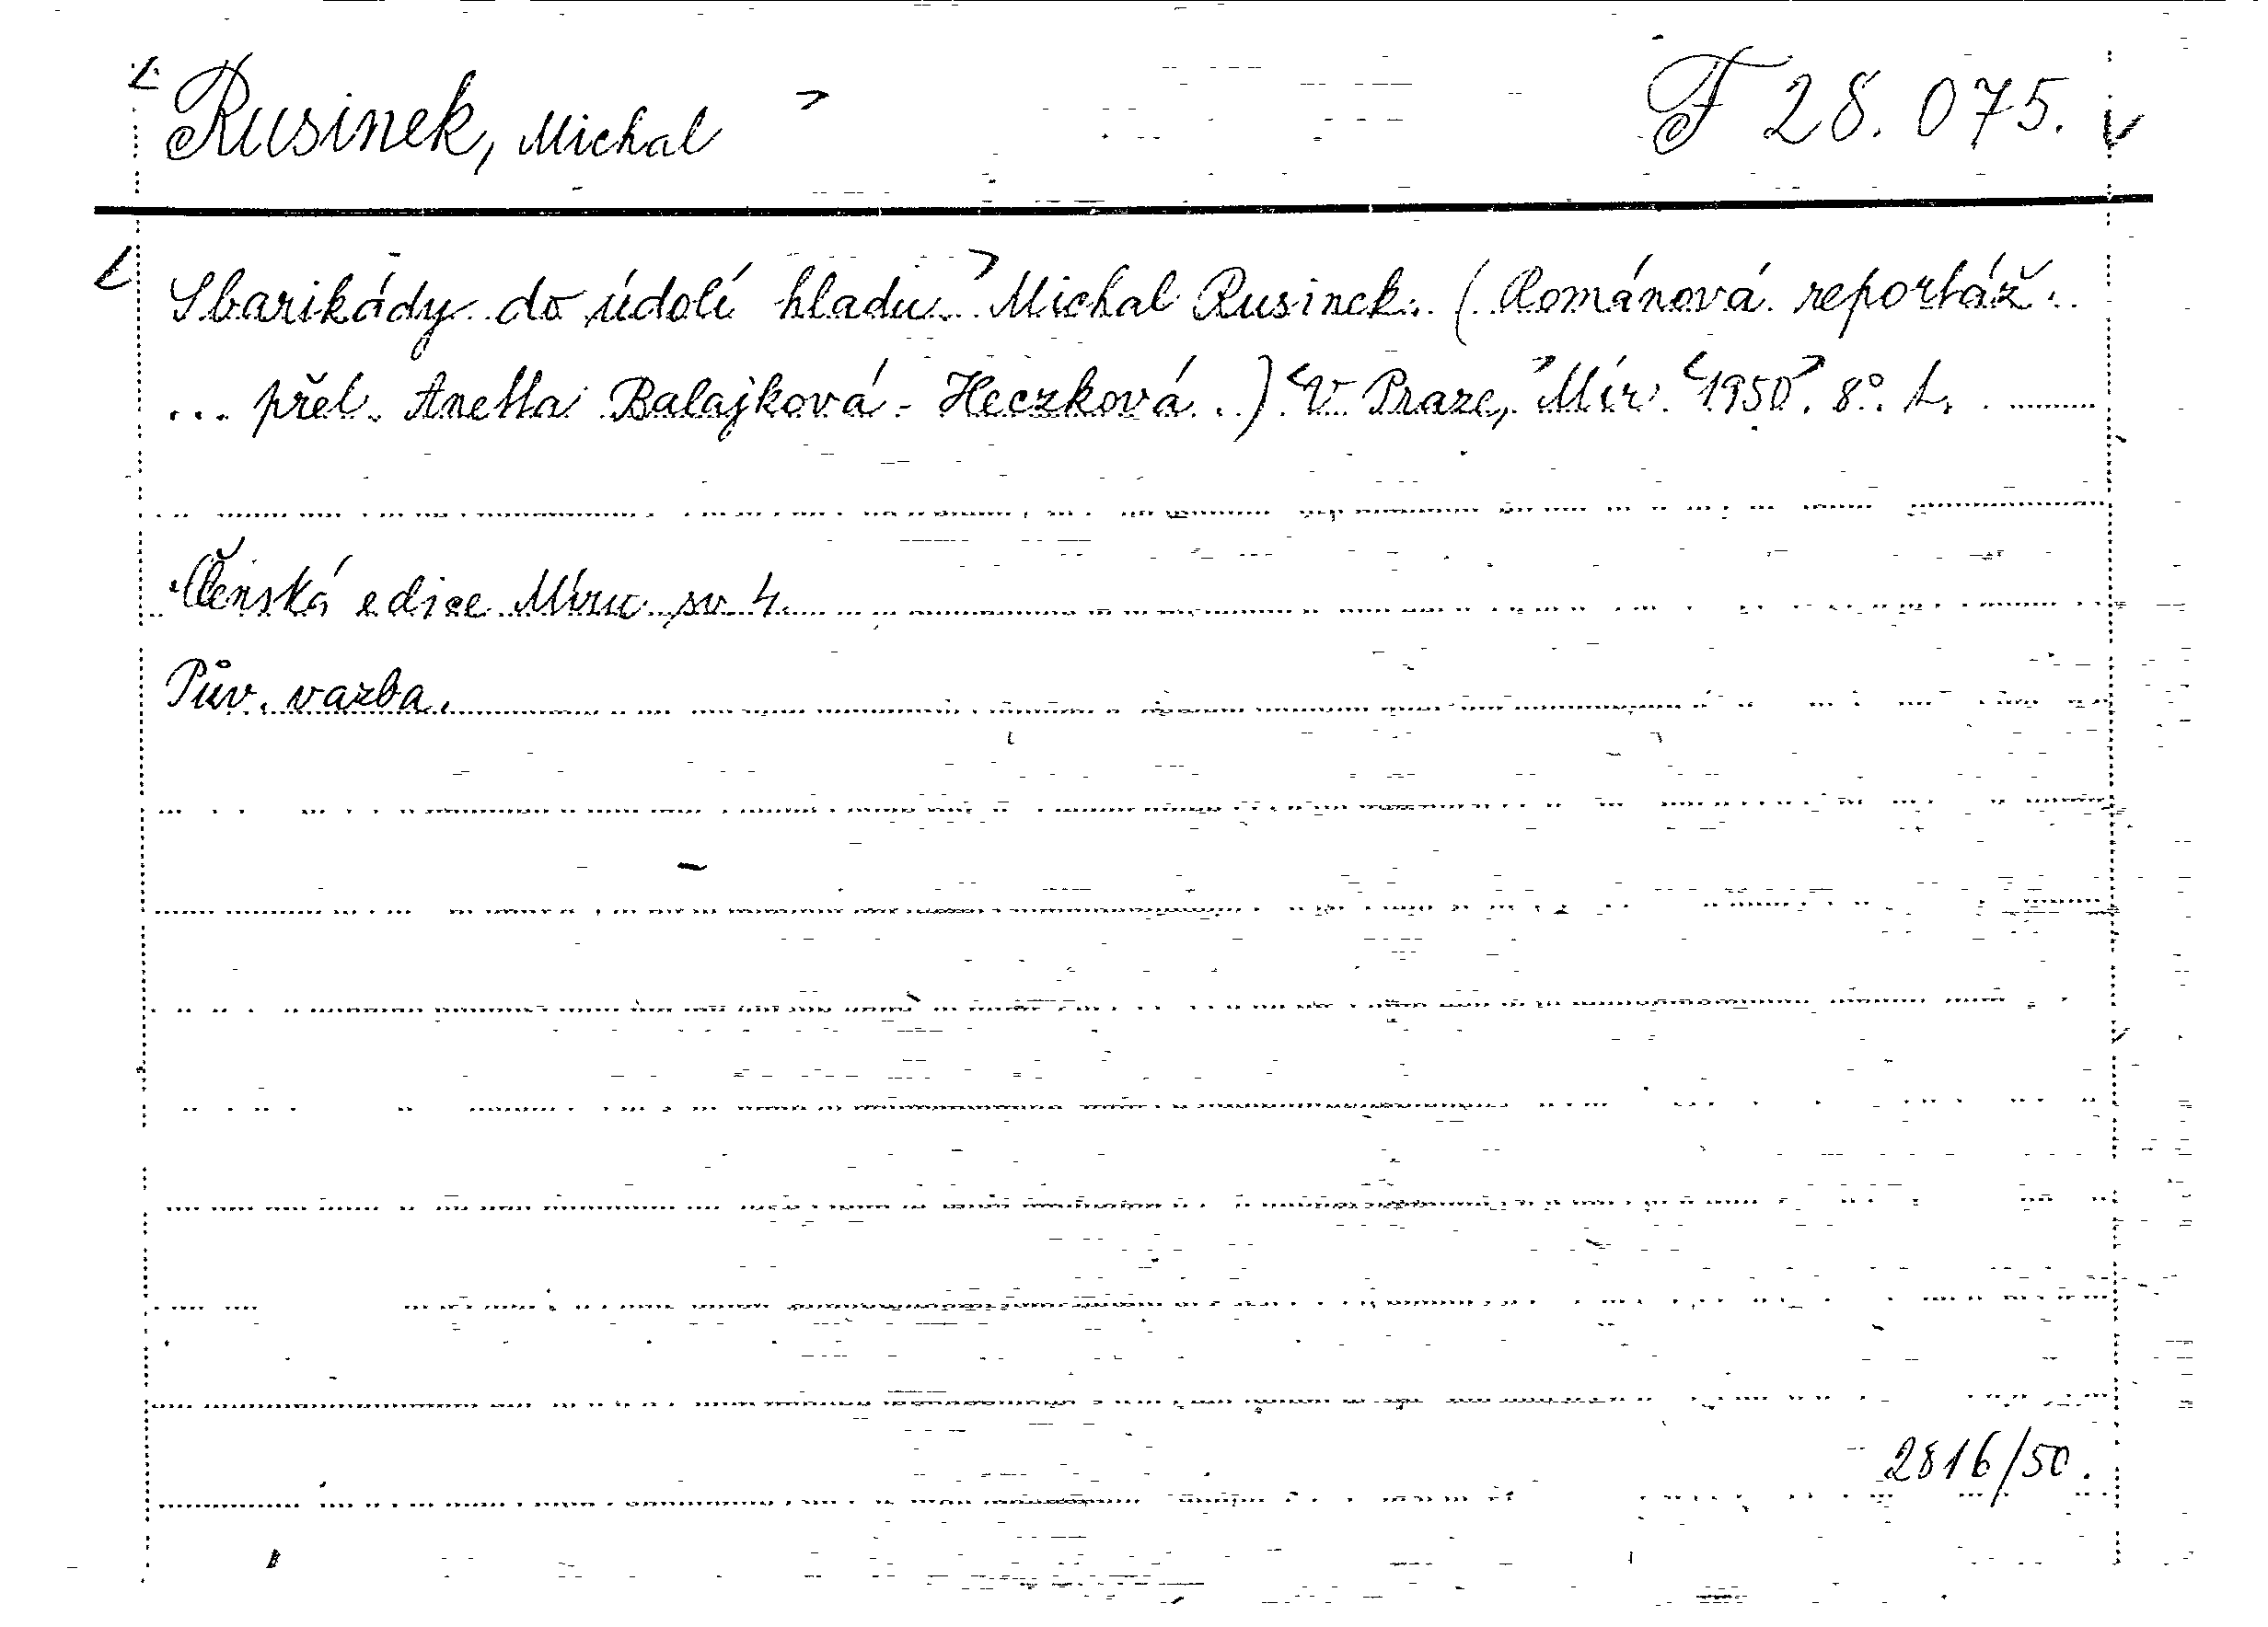 Rusinek, Michal
F 28.075.
S barikády do údolí hladu. Michal Rusinek. (Románová reportáž.
... přel. Anetta Balajková-Heczková..) V Praze, Mír 1950. 8°.
Členská edice Míru sv. 4.
Pův. vazba.
2816/50.